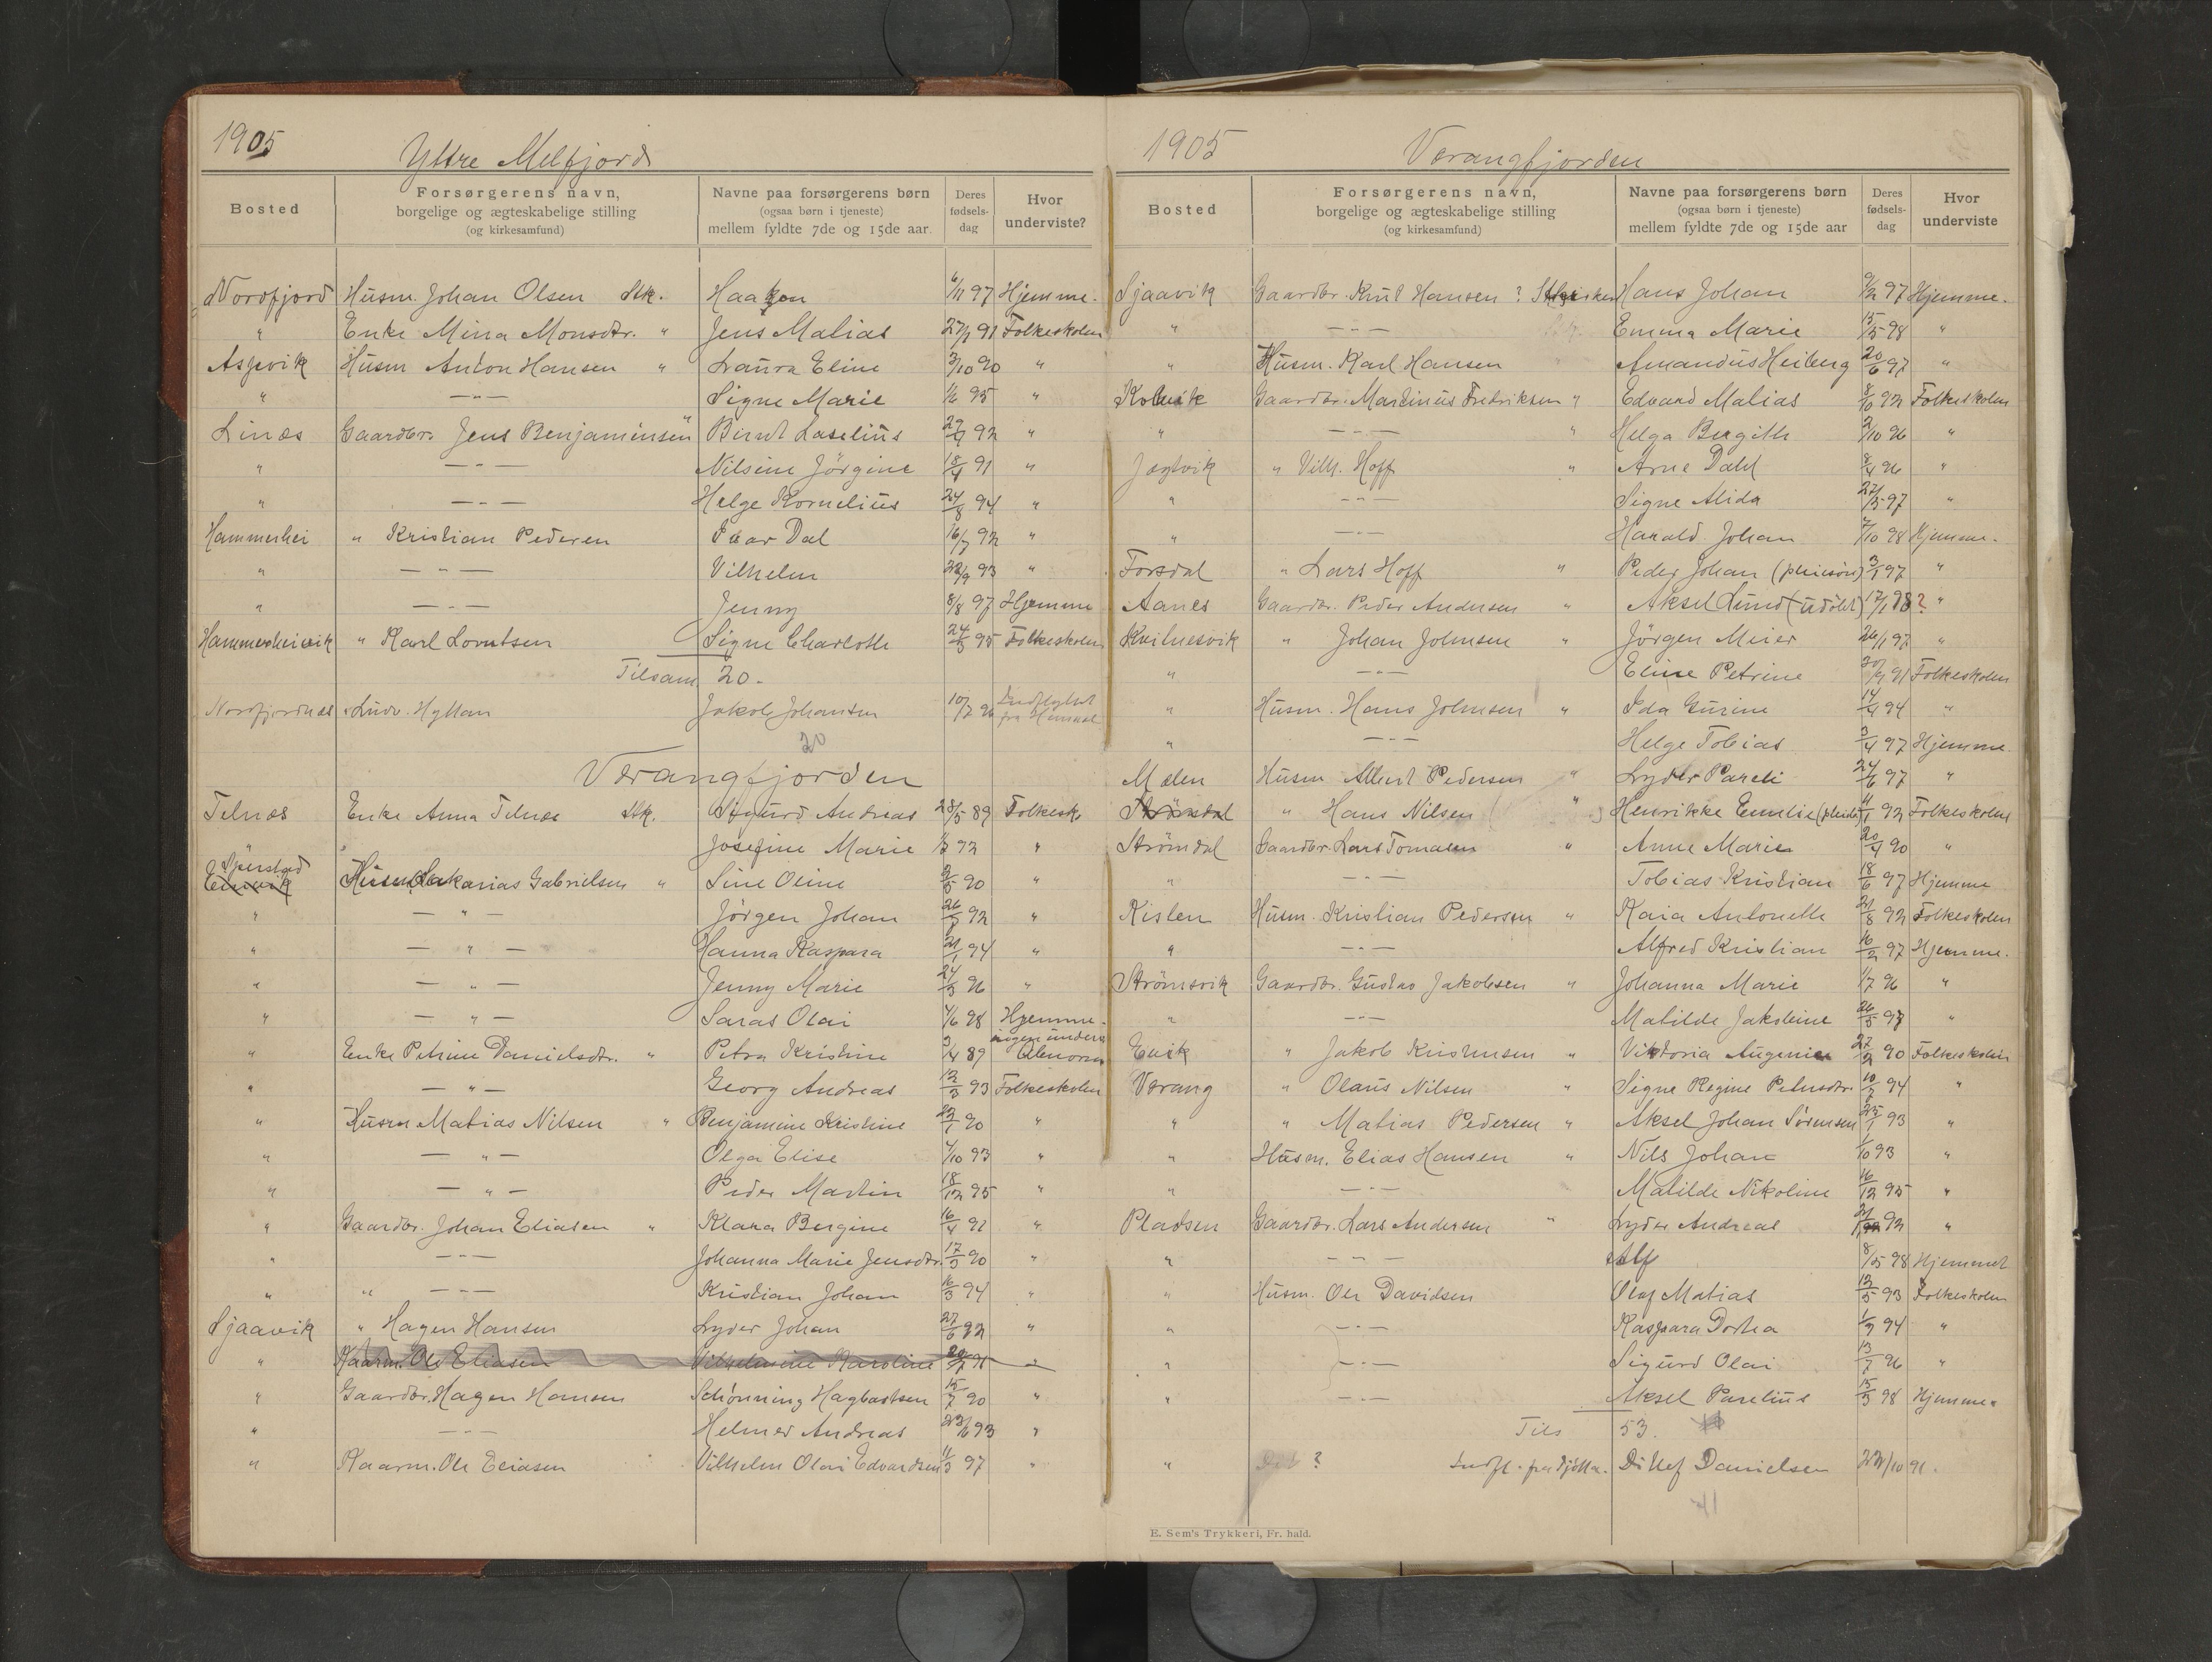 1905
Yttre Melfjord
Bosted | Forsørgerens navn, borgelige og ægteskabelige stilling (og kirkesamfund) | Navne paa forsørgerens børn (ogsaa børn i tjeneste) mellem fyldte 7de og 15de aar. | Deres fødselsdag | Hvor underviste?
Nordfjord Husm. Johan Olsen Stk. Haakon 6/11 97 Hjemme.
" Enke Mina Monsdtr. " Jens Malias 27/7 91 Folkeskolen
Aspvik Husm Anton Hansen " Laura Eline 3/10 90 "
" — " — Signe Marie 1/6 95 "
Linæs Gaardbr. Jens Benjaminsen " Birnt Laselius 27/7 92 "
" — " — Nilsine Jörgine 18/4 91 "
" — " — Helge Kornelius 24/8 94 "
Hammerhei " Kristian Pedersen Ivar Dal 16/7 92 "
" — " — Vilhelm 22/9 93 "
" — " — Jenny 8/8 97 Hjemme
Hammerheivik " Karl Lorntsen Signe Charlotte 24/5 95 Folkeskolen
Tilsam 20.
Nordfjordnes " Ludv. Hyttan Jakob Johansen 10/7 96 Indflyttet fra
20
Værangfjorden
Telnes Enke Anna Telnes Stk. Sigurd Andreas 28/5 89 Folkesk
Josefine Marie 92 "
Sperstad
Husm Sakarias Gabrielsen " Sine Oline 2/5 90 "
" — " — Jörgen Johan 26/7 92 "
" — " — Hanna Kaspara 21/1 94 "
" — " — Jenny Marie 24/3 96 "
" — " — Saras Olai 4/6 98 Hjemme.
" Enke Petrine Danielsdtr. " Petra Kristine 3/4 89 ingen underv. Abnorm
" — " — Georg Andreas 12/3 93 Folkeskolen
" Husm Matias Nilsen " Benjamine Kristine 22/1 90 "
" — " — Olga Elise 4/10 93 "
" — " — Peder Martin 18/12 95 "
" Gaardbr. Johan Eliasen " Klara Bergine 16/4 92 "
" — " — Johanna Marie Jensdtr. 17/3 90 "
" " — " — Kristian Johan 16/3 94 "
Sjaavik " Hagen Hansen Lyder Johan 27/6 92 "
" Kaarm. Ole Eliasen Vilhelmine Karoline "
" Gaardbr. Hagen Hansen Schönning Hagbartsen 15/7 90 "
" — " — Helmer Andreas 23/6 93 "
" Kaarm. Ole Eliasen Vilhelm Olai Edvardsen 11/3 97 "
1905
Værangfjorden
Bosted | Forsørgerens navn, borgelige og ægteskabelige stilling (og kirkesamfund) | Navne paa forsørgerens børn (ogsaa børn i tjeneste) mellem fyldte 7de og 15de aar | Deres fødselsdag | Hvor underviste
Sjaavik Gaardbr. Knut Hansen ? Hans Johan 9/2 97 Hjemme.
" — " — Emma Marie 15/5 98 "
" Husm. Karl Hansen Amandus Heiberg 20/6 97 "
Kolvik Gaardbr. Martinus Fredriksen " Edvard Malias 8/10 92 Folkeskolen
" — " — " Helga Bergith 2/10 96 "
Jægtvik " Vilh. Hoff " Arne Dahl 8/4 96 "
" — " — Signe Alida 27/5 97 "
" — " — Harald Johan 7/10 98 Hjemme.
Forsdal " Lars Hoff " Peder Johan (pleiesön) 3/1 97 "
Aanes Gaardbr. Peder Andersen " Aksel Lund (udölt) 17/1 98? "
Kvilnesvik " Johan Johnsen " Jörgen Meier 26/1 97 "
" — " — Eline Petrine 30/7 91 Folkeskolen
" Husm. Hans Johnsen " Ida Gurine 14/4 94 "
" — " — Helge Tobias 3/4 97 Hjemme
Mælen Husm Albert Pedersen " Lyder Pareli 24/6 97 "
Strömdal " Hans Nilsen " Henrikke Emelie 4/1 92 Folkeskolen
Strömdal Gaardbr. Lars Tomasen " Anne Marie 20/4 90 "
" — " — Tobias Kristian 18/6 97 Hjemme
Kisten Husm. Kristian Pedersen " Kaia Antonette 21/8 92 Folkeskolen
" — " — Alfred Kristian 16/2 97 Hjemme.
Strömsvik Gaardbr. Gustav Jakobsen " Johanna Marie 1/7 96 "
" — " — Matilde Jakobine 26/5 97 "
Envik " Jakob Kristensen " Viktoria Augenie 27/2 90 Folkeskolen
Værang " Olaus Nilsen " Signe Regine Petersdtr. 10/7 94 "
" " Matias Pedersen " Aksel Johan Sörensen 25/1 93 "
" Husm. Elias Hansen " Nils Johan 1/10 93 "
" — " — Matilde Nikoline 16/12 95 "
Pladsen Gaardbr. Lars Andersen " Lyder Andreas 92 "
" — " — Alf 8/5 98 Hjemmet
" Husm. Ole Davidsen Olaf Matias 12/5 93 Folkeskolen
" — " — Kaspara Dortea 1/7 94 "
" — " — Sigurd Olai 13/7 96 "
" — " — Aksel Parelius 15/3 98 Hjemme.
Tils 53.
" ? Indfl. fra Gjötta. Ditlef Danielsen 23/10 91.
41
E. Sem's Trykkeri, Fr. hald.